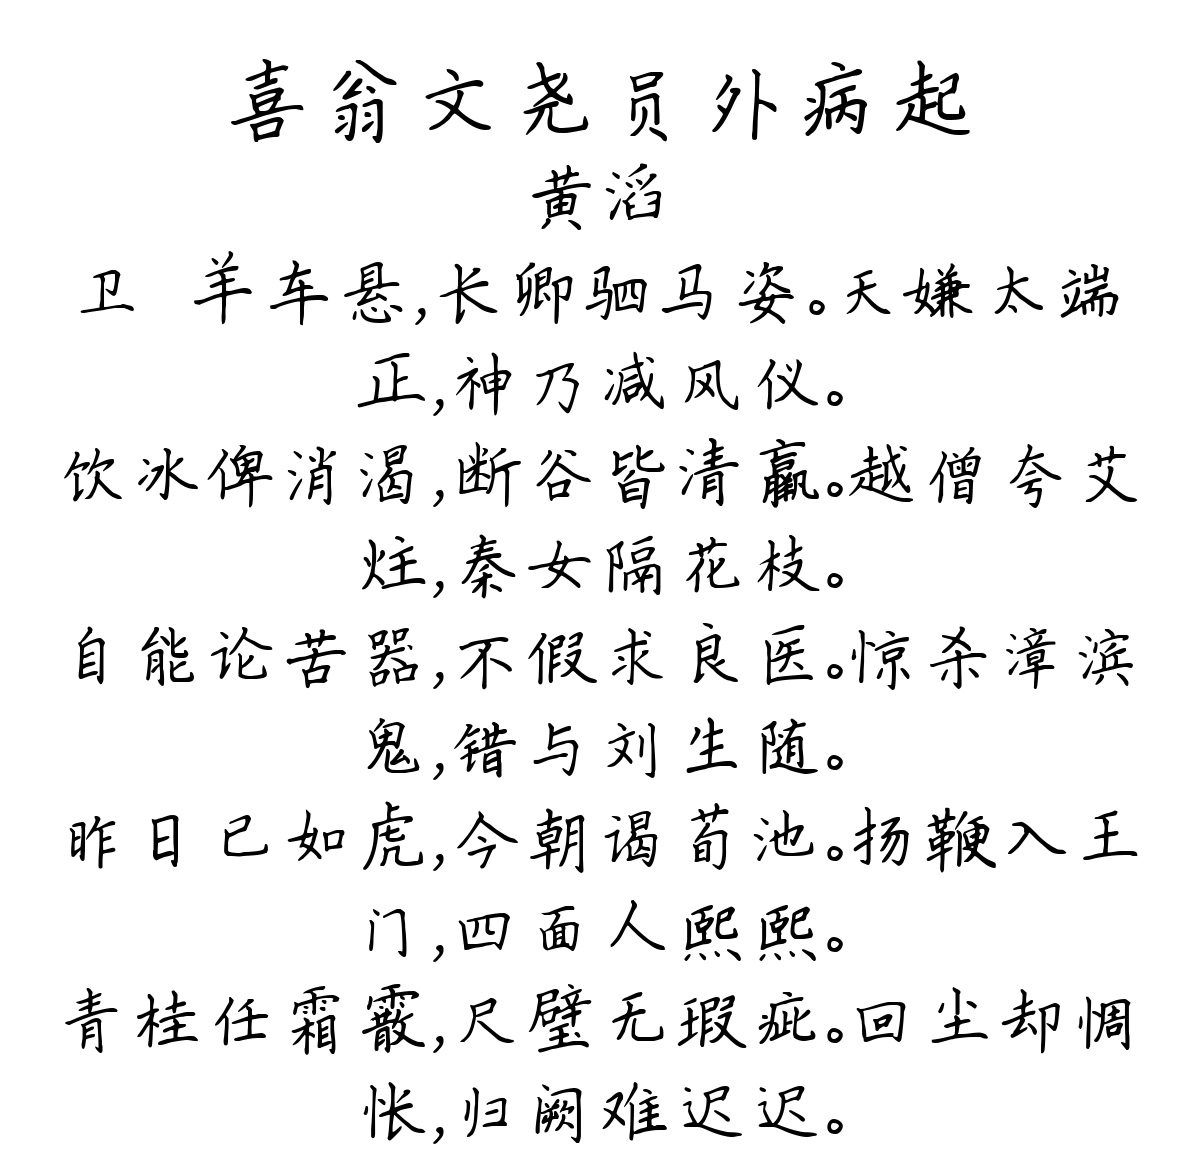 喜翁文尧员外病起
黄滔
卫 羊车悬,长卿驷马姿。天嫌太端
正,神乃减风仪。
饮冰俾消渴,断谷皆清羸。越僧夸艾
炷,秦女隔花枝。
自能论苦器,不假求良医。惊杀漳滨
鬼,错与刘生随。
昨日已如虎,今朝谒荀池。扬鞭入王
门,四面人熙熙。
青桂任霜霰,尺璧无瑕疵。回尘却惆
怅,归阙难迟迟。